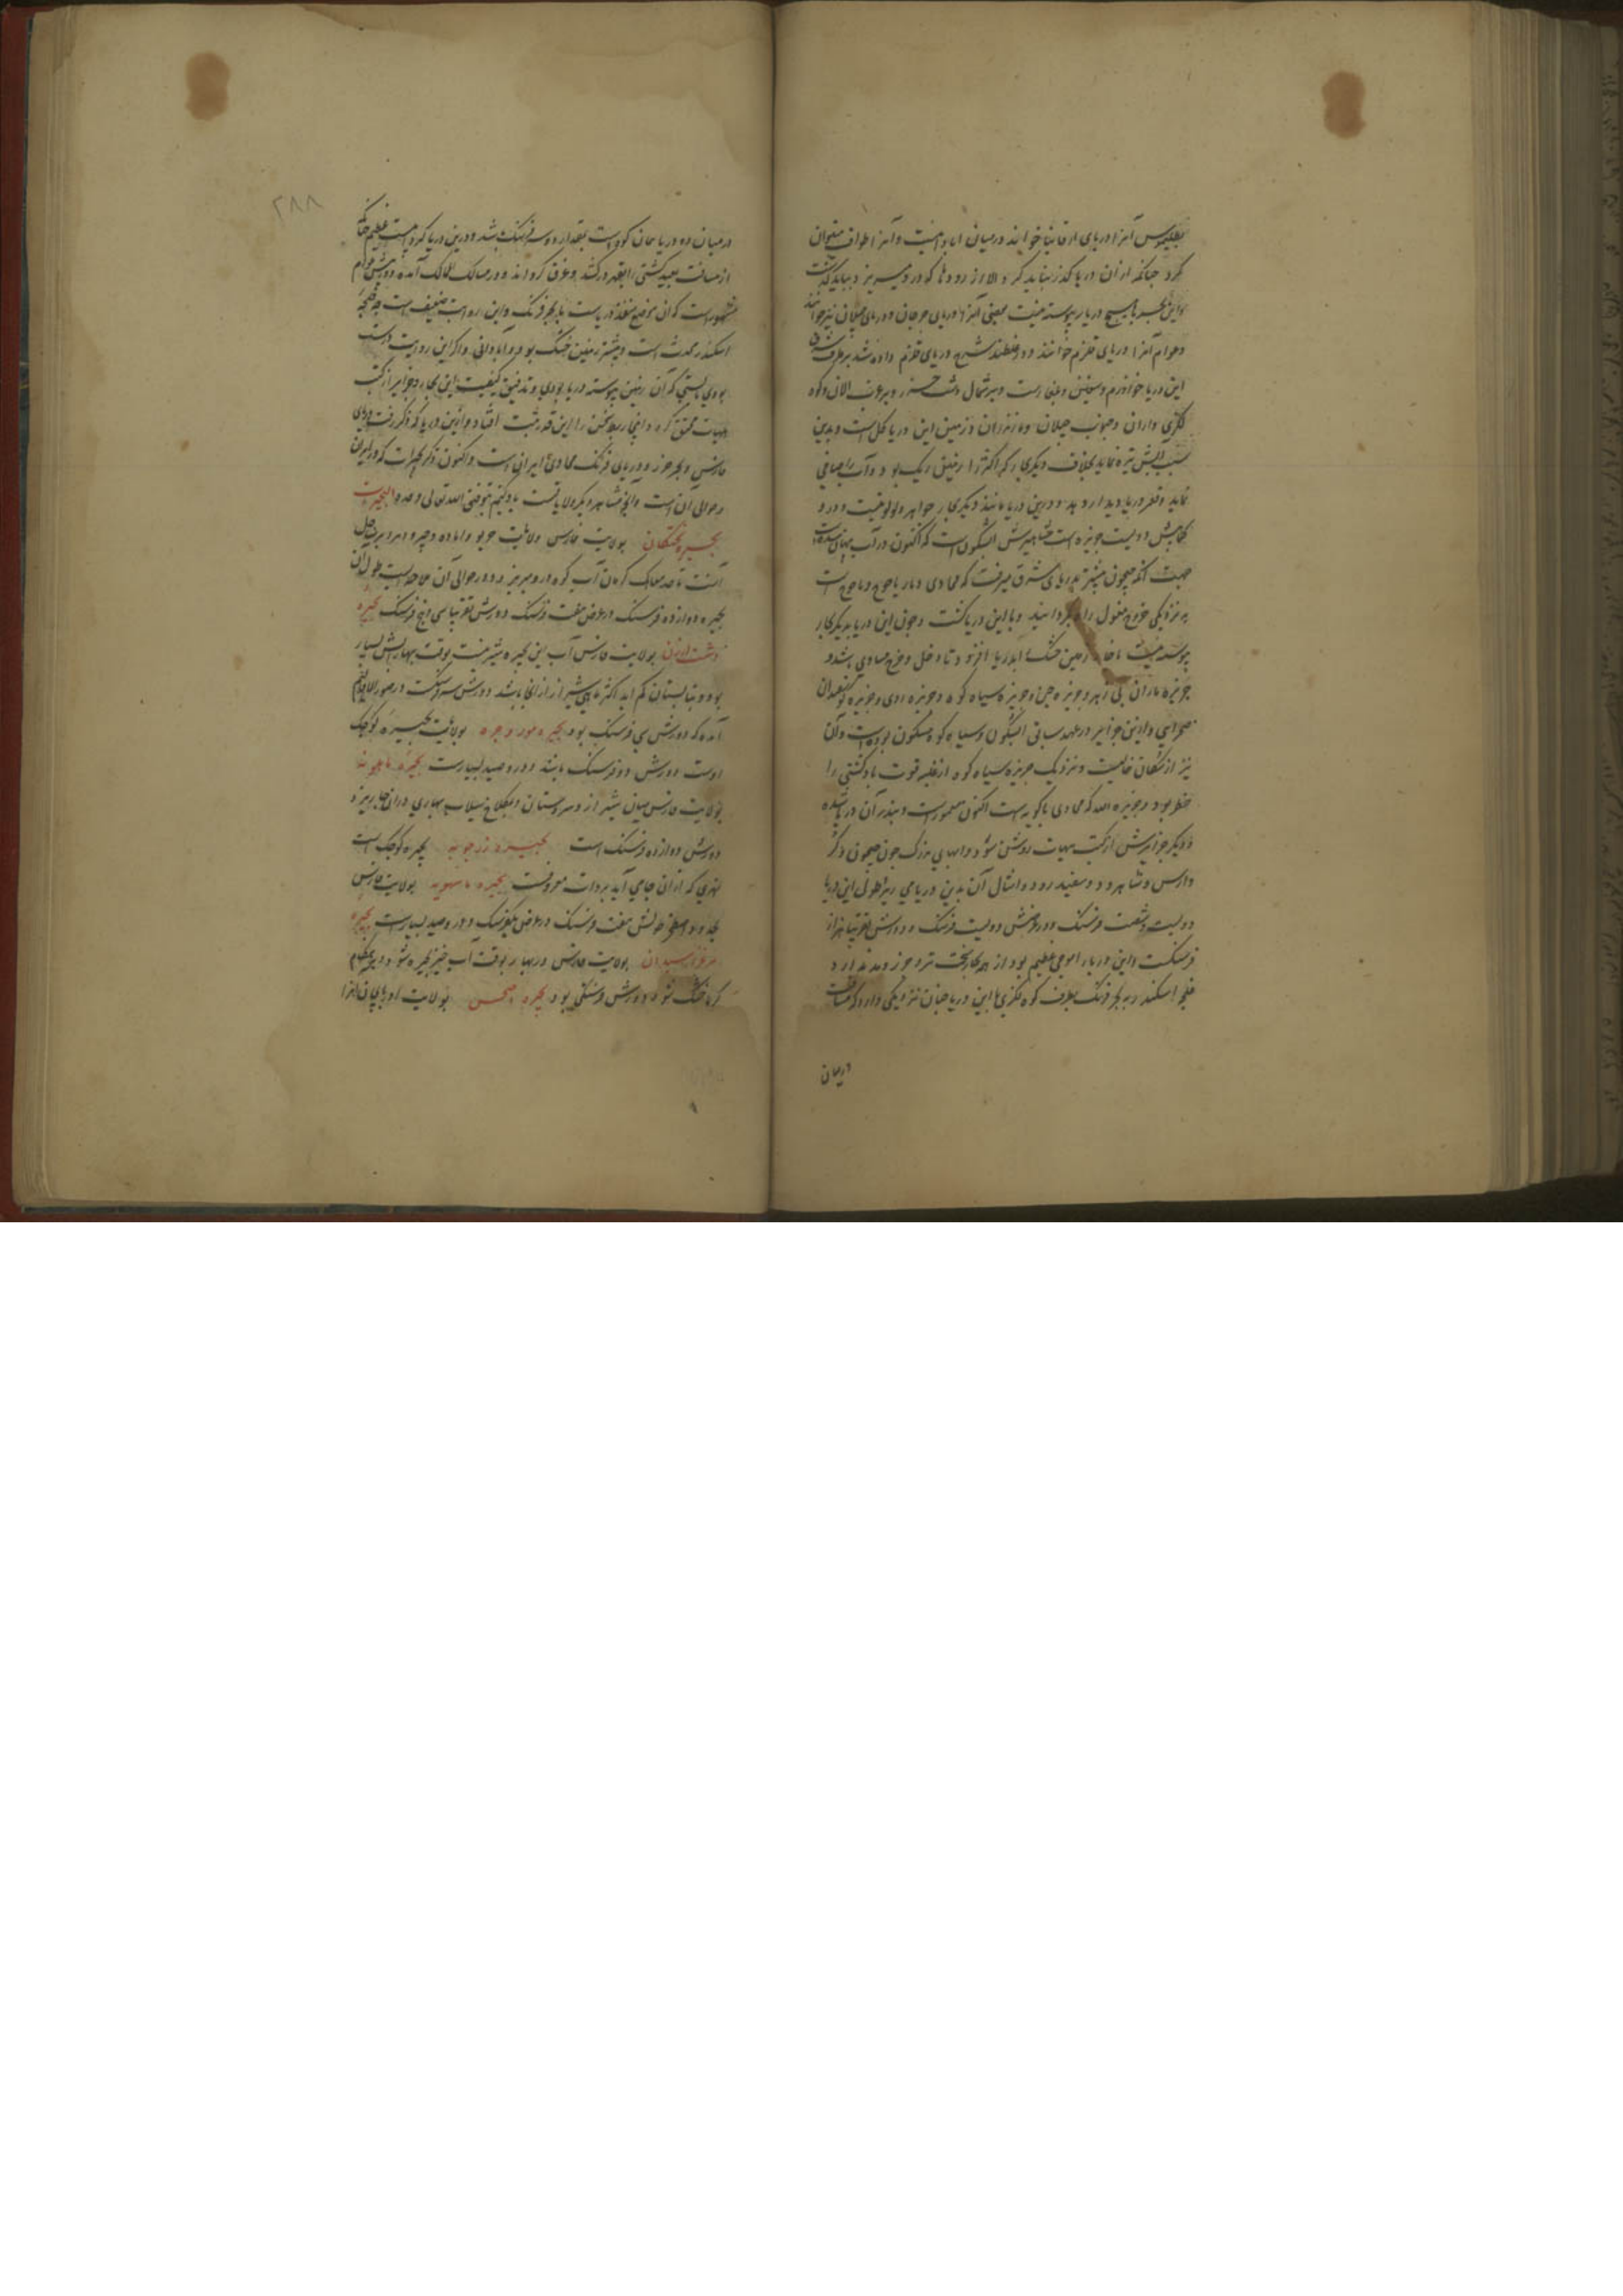 بطلیموس آنرا دریای ارقانیا خوانند درمیان ابادانیست و آنرا طواف میتوان
کرد چنانکه از آن دریا گذر نباید کرد الا از رودها که درو میریزد بباید گذشت
و این بحر بهیچ دریا پیوسته نیست بعضی آنرا دریای جرجان و دریای جیلان نیز خوانند
و عوام آنرا دریای قلزم خوانند و غلطند شرح دریای قلزم داده شد بر طرف شرقی
این دریا خوارزم و سقین و بلغارست و بر شمال دشت خزر و بر غرب الان و کوه
لکزی و اران و جنوب جیلان و مازندران و زمین این دریا گل است و بدین
سبب آبش تیره نماید بخلاف دیگر بحار که اکثر را زمین ریک بود و آب را صافی
نماید و قعر دریا دیدار دهد و درین دریا مانند دیگر بحار جواهر و لولو نیست و درو
کمابیش دویست جزیره است مشاهیرش آبسکون است که اکنون در آب پنهان شده است
جهت آنکه جیحون پیشتر بدریای مشرق میرفت که محاذی دیار یاجوج و ماجوج است
به نزدیکی خروج مغول راه بگردانید و با این دریا گشت و چون این دریا بدیگر بحار
پیوسته نیست زمین خشک در دریا افزود تا دخل و خرج مساوی شد و
جزیره ماران بی زهر و جزیره جن و جزیره سیاه کوه و جزیره اوی و جزیره گوسفندان
صحرایی و ازین جزایر در عهد سابق آبسکون و سیاه کوه مسکون بوده است و آن
نیز از سکان خالیست و نزدیک جزیره سیاه کوه از غلبه قوت باد کشتی را
خطر بود و جزیره الله که محاذی باکویه است اکنون معمورست و بندر آن دریا شده
و دیگر جزایرش از کتب هیات روشن شود و ابهای بزرگ چون جیحون و کر
و ارس و شاهرود و سفیدرود و امثال آن بدین دریا می ریزد طول این دریا
دویست و شصت فرسنگ و در عرضش دویست فرسنگ و دورش تقریبا هزار
فرسنگست و این دریا را موجی عظیم بود از همه بحار سخت تر و جزر و مد ندارد
خلیج اسکندریه بحر فرنگ بطرف کوه لکزی با این دریا چنان نزدیکی دارد که مسافت
درمیان
۲۸۸
درمیان دو دریا همان کوه است بمقدار دو سه فرسنگ باشد و درین دریا گردابیست عظیم چنانکه
از مسافت بعید کشتی را بقعر درکشد و غرق گرداند و در مسالک الممالک آمده و در پیش عوام
مشهورست که آن موضع منفذ دریاست با بحر فرنگ و این روایت ضعیف است چه خلیج
اسکندر محدث است و پیشتر زمین خشک بود و آبادانی و اگر این روایت درست
بودی بایستی که آن زمین پیوسته دریا بودی و تدقیق کیفیت این بحار و جزایر از کتب
هیات محقق کرده و اینجا ربط سخن را این قدر ثبت افتاد و ازین دریا که ذکر رفت دریای
فارس و بحر خزر و دریای فرنگ محاذی ایرانی است و اکنون ذکر بحیرات که در ایران
و حوالی آن است و آنچه مشاهیر دیگر ولایاتست یاد کنیم بتوفیق الله تعالی وحده البحیرات
بحیره بختگان بولایت فارس
آنست تا حد صاهک کرمان آب کر درو میریزد و در حوالی آن ملاحه است طول آن
بحیره دوازده فرسنگ در عرض هفت فرسنگ دورش تقریبا سی و پنج فرسنگ بحیره
دشت ارزن بولایت فارس آب این بحیره شیرینست بوقت بهار آبش بسیار
بود و بتابستان کم آید اکثر ماهی شیراز از آنجا باشد دورش سه فرسنگست و در صور الاقالیم
آمده که دورش سی فرسنگ بود بحیره مور و جره بولایت بحیره کوچک
است دورش دو فرسنگ باشد و درو صید بسیارست بحیره ماهلویه
بولایت فارس میان شیراز و سروستان سیلاب بهاری در آنجا ریزد
دورش دوازده فرسنگ است بحیره زرجویه بحیره کوچک است
نهری که از آن جا می آید بردات معروفست بحیره باسفویه بولایت فارس
بحدود اصطخر طولش هفت فرسنگ در عرض یکفرسنگ و درو صید بسیارست بحیره
مرغزار سیدان بولایت فارس در بهار بوقت آب خیز بحیره شود و بهنگام
گرما خشک شود دورش فرسنگی بود بحیره چیچست بولایت اذربایجان آنرا